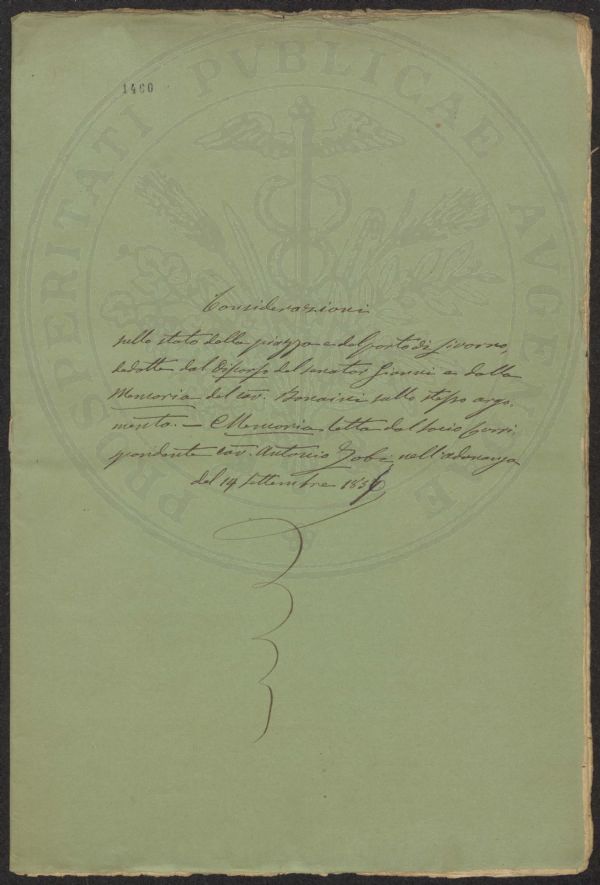 1460
Considerazioni
sullo stato della piazza e del porto di Livorno,
dedotte dal discorso del senator Gianni e dalla
Memoria del cav. Bonaini sullo stesso argo-
mento. — Memoria letta dal socio Corri
spondente cav. Antonio Zobi nell'adunanza
del 14 settembre 1856
PROSPERITATI PVBLICAE AVGENDAE